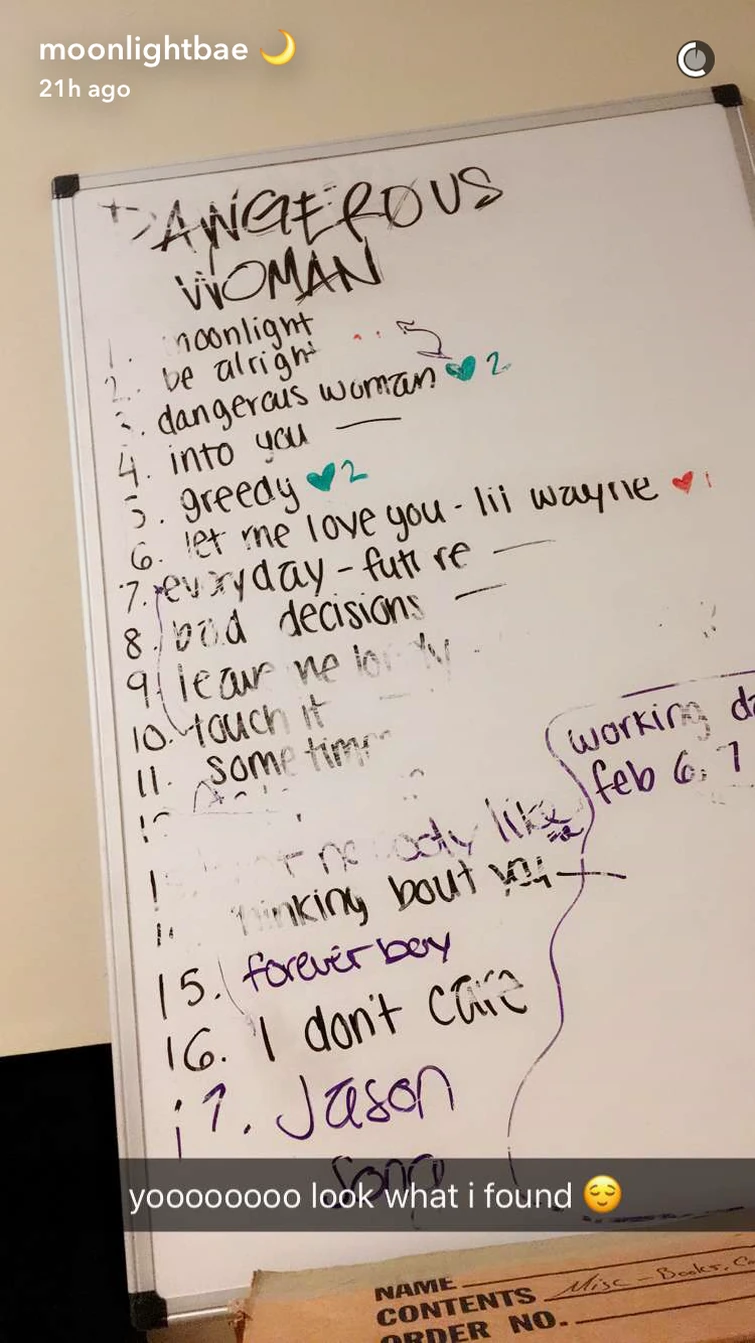 moonlightbae 🌙
21h ago
DANGEROUS
WOMAN
1. moonlight
2. be alright
3. dangerous woman 2
4. into you
5. greedy 2
6. let me love you - lil wayne 1
7. everyday - future
8. bad decisions
9. leave me lonely
10. touch it
11. sometimes
nobody like
thinking bout you
15. forever boy
16. I don't care
17. Jason
song
working
feb 6, 7
yoooooooo look what i found 😌
NAME
CONTENTS Misc - Books,
ORDER NO.